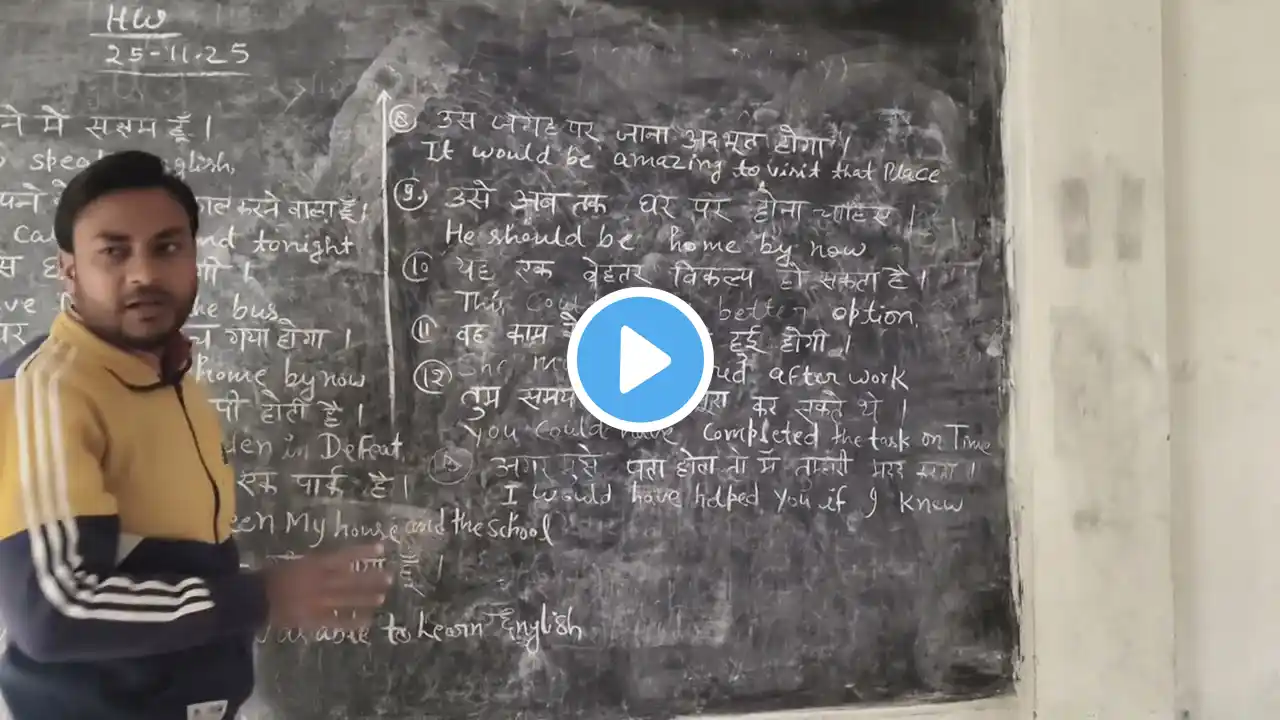 HW
25-11-25
ने में सक्षम हूँ ।
speak English,
पने काल करने वाला हूँ।
Ca nd tonight
ve the bus
च गया होगा ।
home by now
पी होती है ।
den in Defeat,
एक पार्क है ।
een My house and the School
हूँ ।
as able to Learn English
⑧ उस जगह पर जाना अद्भूत होगा ।
It would be amazing to visit that Place
⑨ उसे अब तक घर पर होना चाहिए ।
He should be home by now
⑩ यह एक बेहतर विकल्प हो सकता है ।
This could better option.
⑪ वह काम हुई होगी ।
She after work
⑫ तुम समय कर सकते थे ।
You could have completed the task on Time
अगर मुझे पता होता तो मैं तुम्हारी मदद करता ।
I would have helped you if I knew